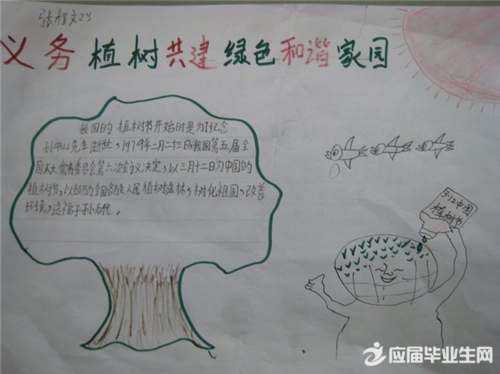 张程文23
义务植树共建绿色和谐家园
我国的植树节开始时是为了纪念
孙中山先生逝世,1979年二月二十三日我国第五届全
国人大常务委员会第六次会议决定,以三月十二日为中国的
植树节,以鼓励全国各族人民植树造林,绿化祖国,改善
环境,造福子孙后代。
3.12中国
植树节
应届毕业生网